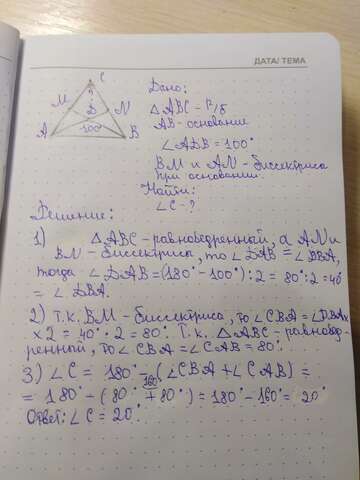 ДАТА/ ТЕМА
C
?
M
N
D
100°
A
B
Дано:
△ABC - р/б
AB - основание
∠ADB = 100°
BM и AN - биссектриса
при основании.
Найти:
∠C - ?
Решение:
1) △ABC - равнобедренный, а AN и
BN - биссектриса, то ∠DAB = ∠DBA,
тогда ∠DAB = (180° - 100°) : 2 = 80° : 2 = 40°
= ∠DBA.
2) Т.к. BM - биссектриса, то ∠CBA = ∠DBA x
x 2 = 40° · 2 = 80°. Т.к. △ABC - равнобед-
ренной, то ∠CBA = ∠CAB = 80°.
3) ∠C = 180° - (∠CBA + ∠CAB) =
= 180° - (80° + 80°) = 180° - 160° = 20°
160
Ответ: ∠C = 20°.